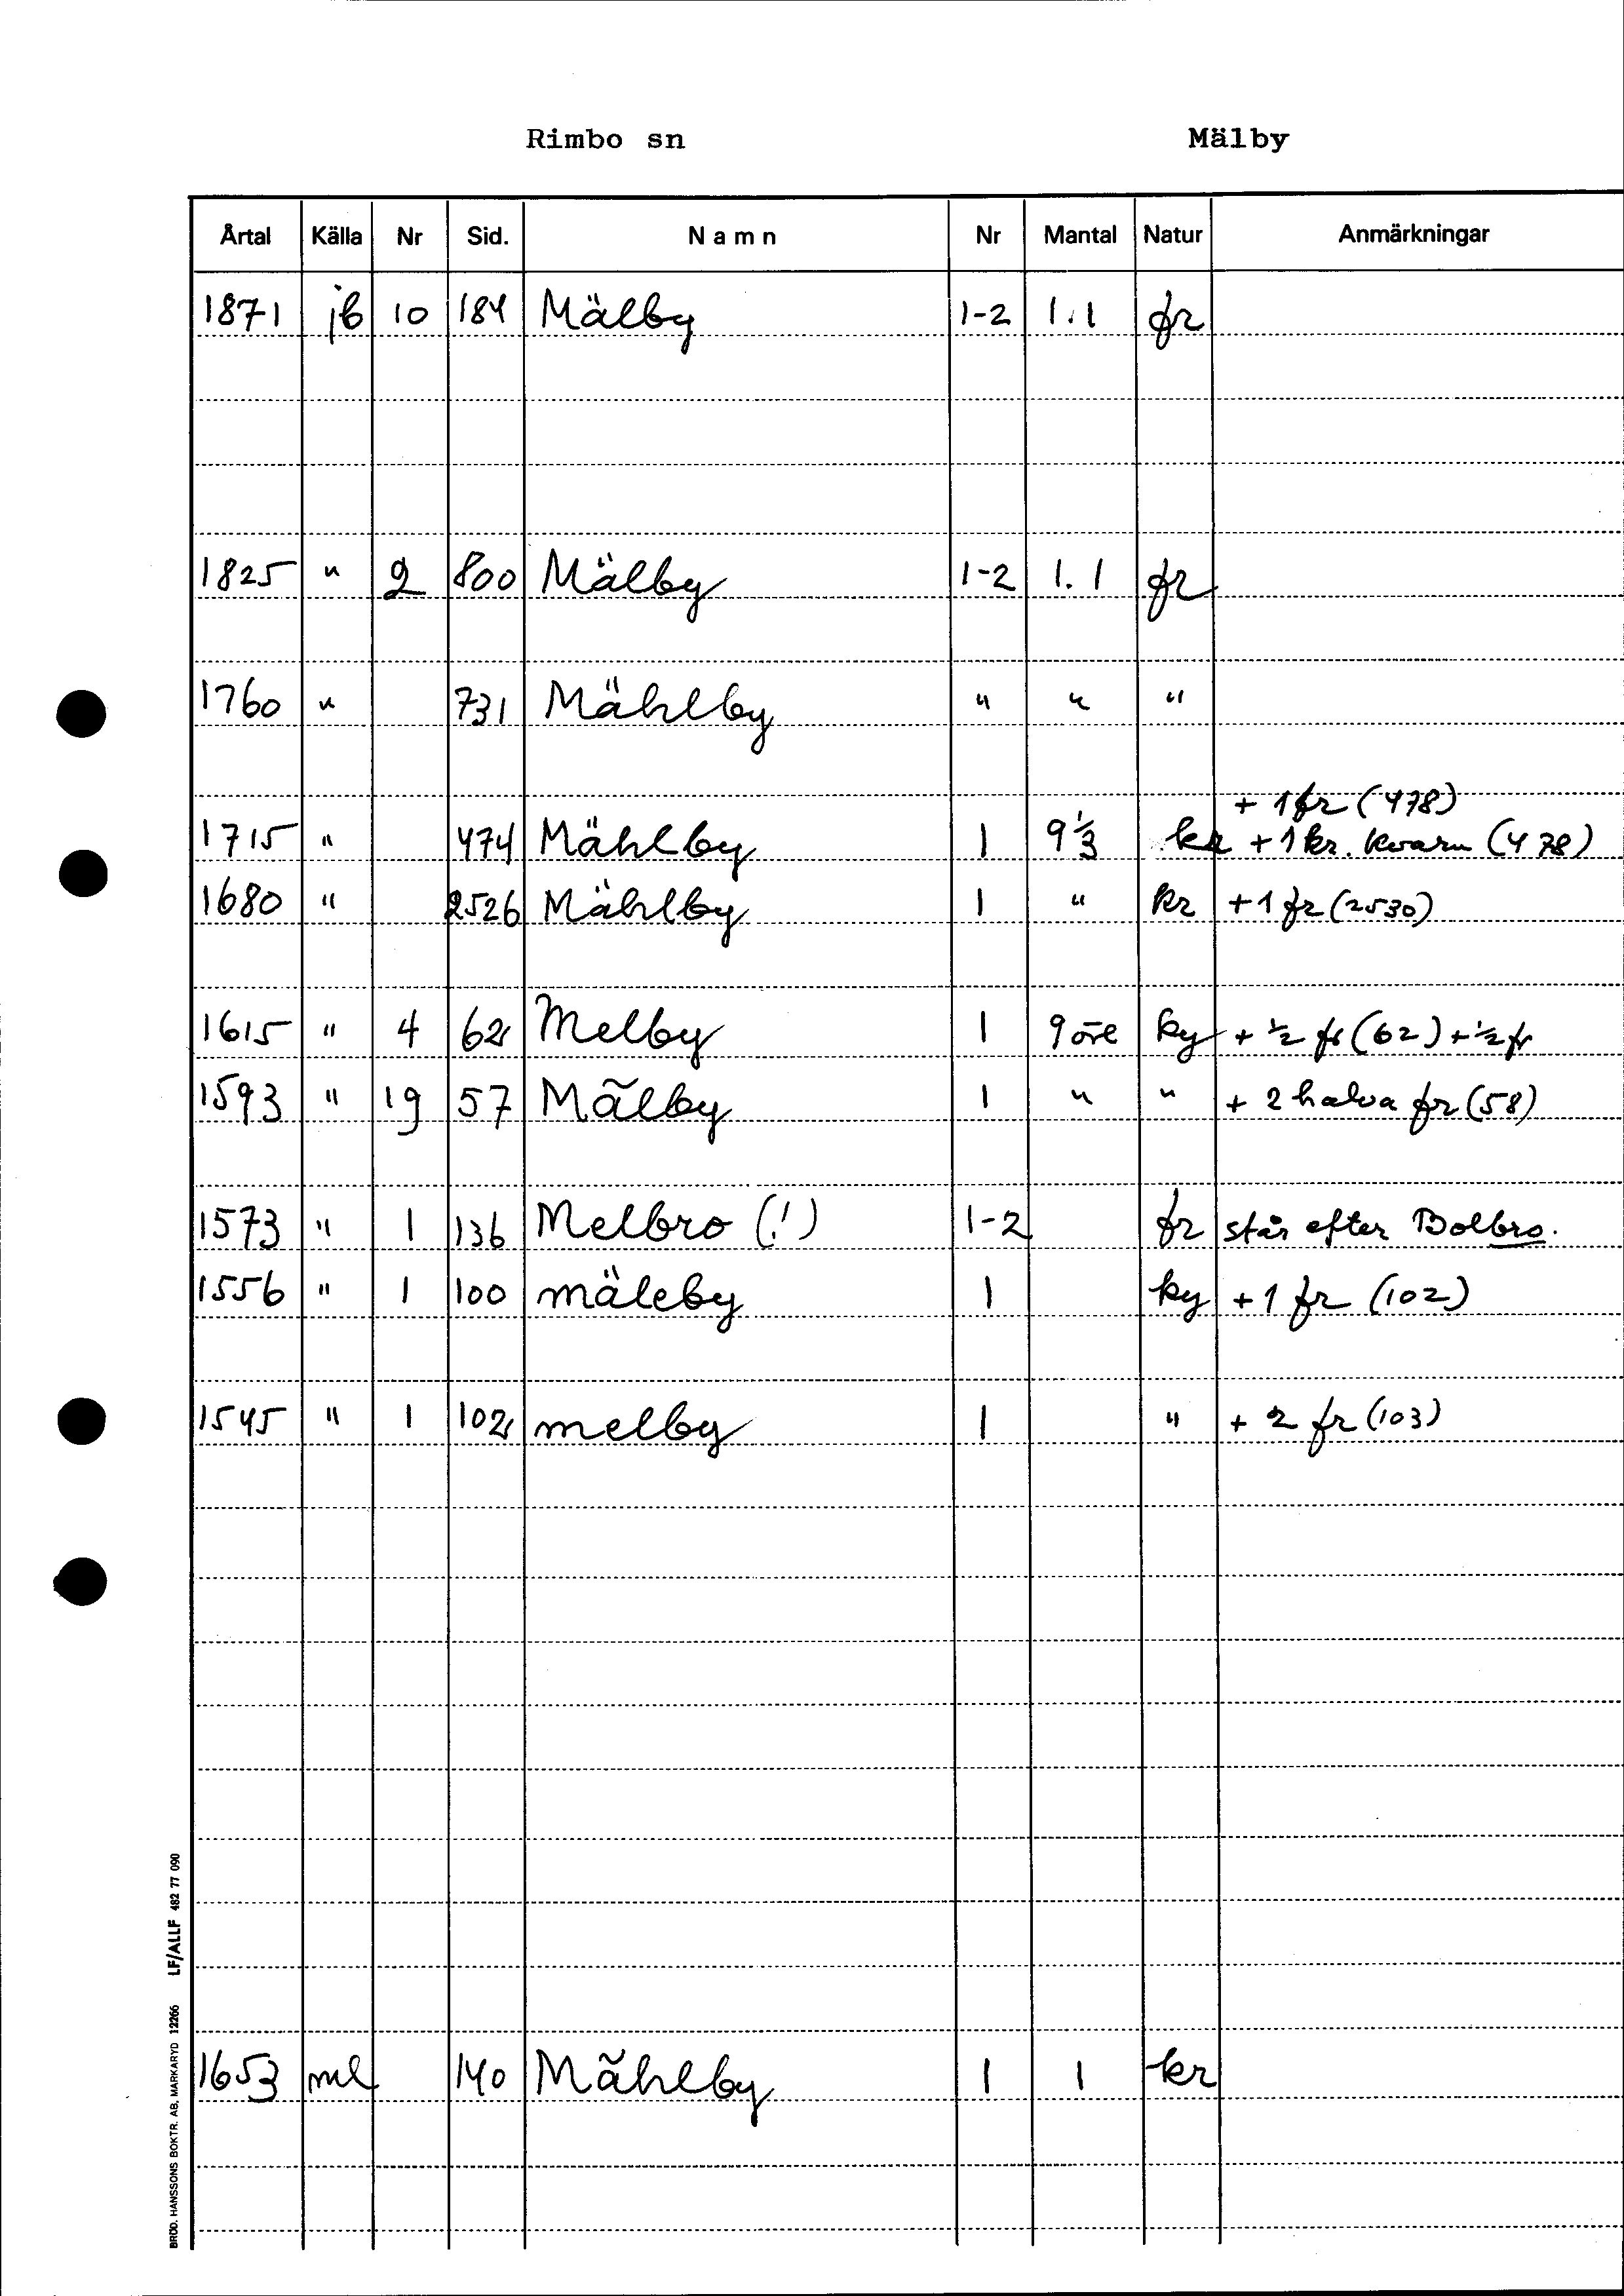 Rimbo sn Mälby
Årtal Källa Nr Sid. Namn Nr Mantal Natur Anmärkningar
1871 jb 10 184 Mälby 1-2 1.1 fr
1825 " 2 800 Mälby 1-2 1.1 fr
1760 " 731 Mählby " " "
+ 1 fr (478)
1715 " 474 Mählby 1 9 1/3 kr + 1 kr. kvarn (478)
1680 " 2526 Mählby 1 " kr + 1 fr (2530)
1615 " 4 62 Melby 1 9 öre ky + 1/2 fr (62) + 1/2 fr
1593 " 19 57 Mãlby 1 " " + 2 halva fr (58)
1573 " 1 136 Melbro (!) 1-2 fr står efter Bolbro.
1556 " 1 100 mäleby 1 ky + 1 fr (102)
1545 " 1 102 melby 1 " + 2 fr (103)
1653 ml 140 Mãhlby 1 1 kr
BRDD. HANSSONS BOKTR. AB, MARKARYD 12266 LF/ALLF 482 77 090